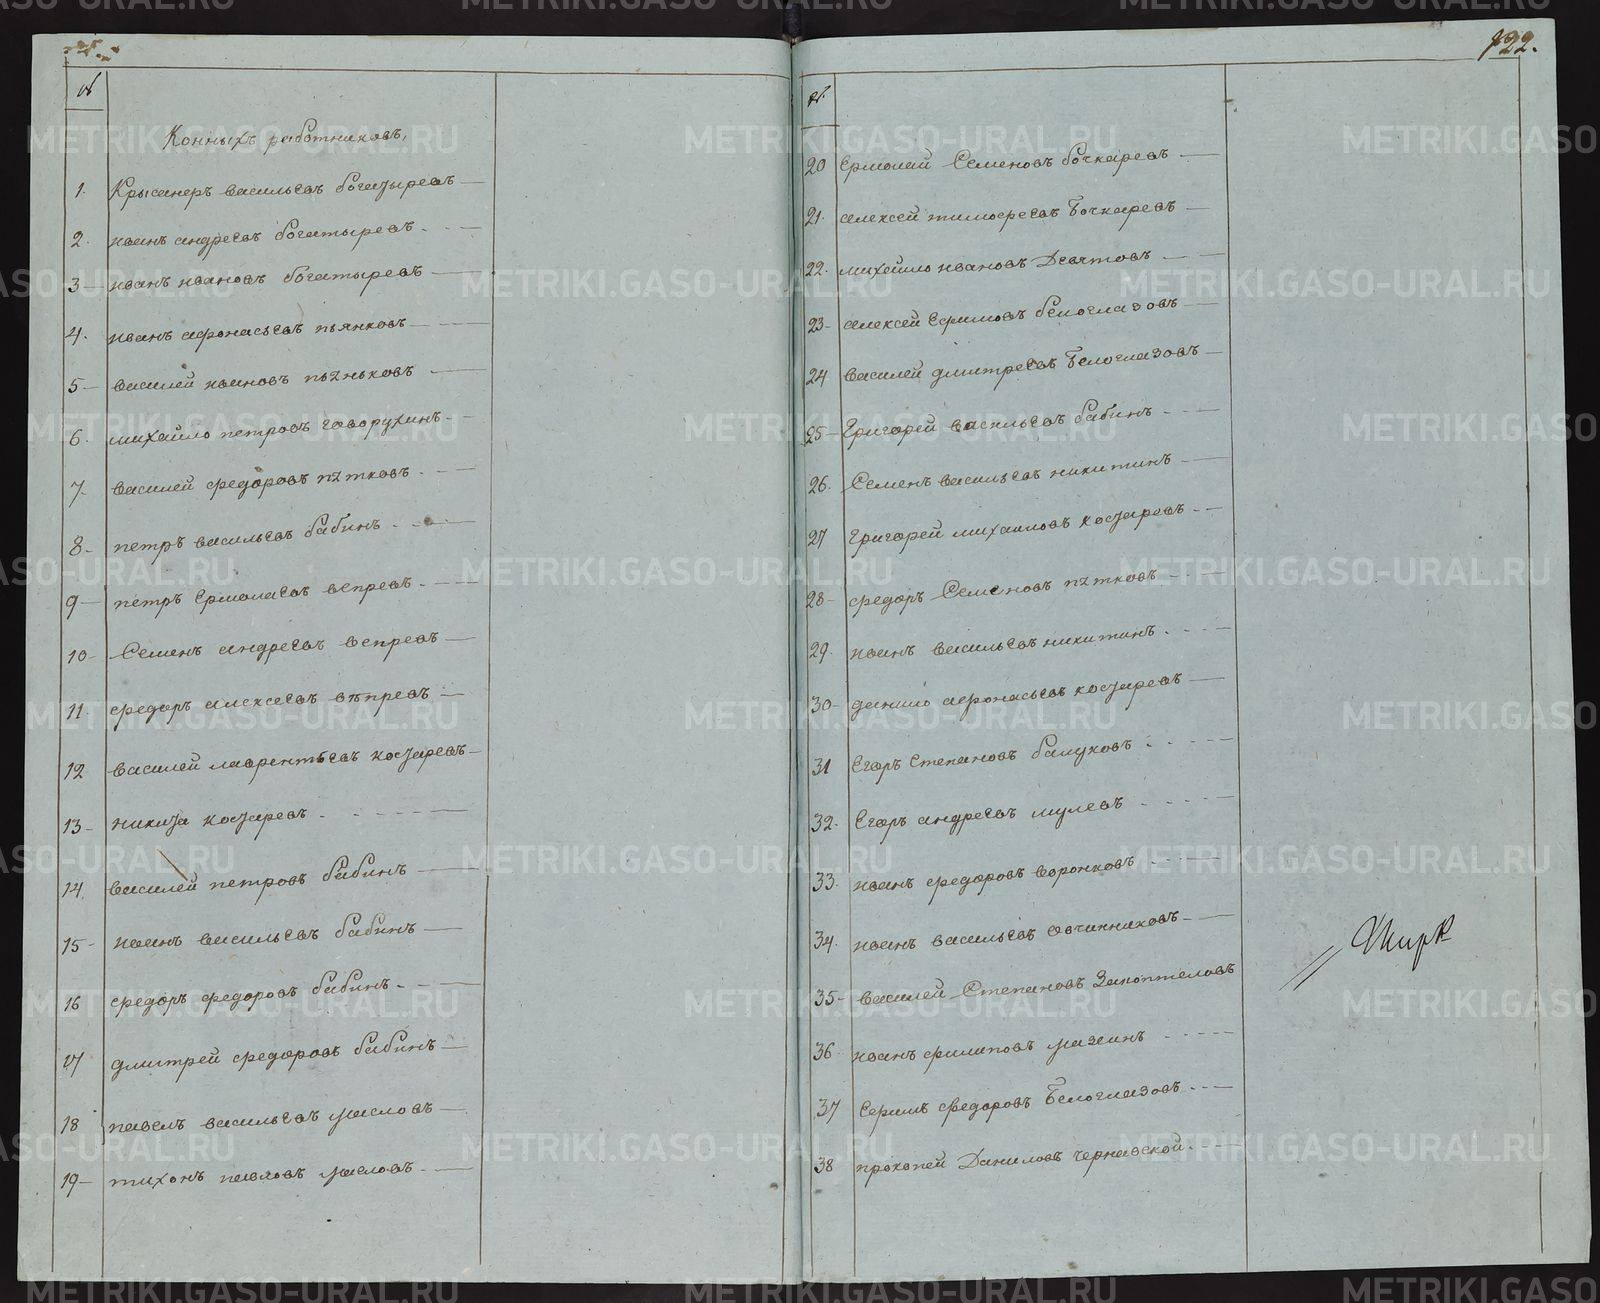 №
Конныхъ работниковъ,
1. Крысанеръ васильевъ богатыревъ
2. иванъ андреевъ богатыревъ
3 иванъ ивановъ богатыревъ
4. иванъ афонасьевъ пьянковъ
5 василей ивановъ
6. михайло петровъ говорухинъ
7. василей федоровъ пятковъ
8 петръ васильевъ бабинъ
9 петръ Ермолаевъ вепревъ
10 Семенъ андреевъ вепревъ
11 федоръ алексеевъ вепревъ
12 василей лаврентьевъ костаревъ
13 никита костаревъ
14 василей петровъ бабинъ
15 иванъ васильевъ бабинъ
16 федоръ федоровъ бабинъ
17 дмитрей федоровъ бабинъ
18 павелъ васильевъ масловъ
19 тихонъ павловъ масловъ
122.
№
20 Ермолай Семеновъ бочкаревъ
21. алексей тимофеевъ Бочкаревъ
22. михайло ивановъ Девятовъ
23 алексей Ефимовъ белоглазовъ
24 василей дмитревъ Белоглазовъ
25 Григорей васильевъ бабинъ
26. Семенъ васильевъ никитинъ
27 Григорей михаиловъ костаревъ
28 федоръ Семеновъ пятковъ
29. иванъ васильевъ никитинъ
30 данило афонасьевъ костаревъ
31 Егоръ Степановъ балуковъ
32. Егоръ андреевъ мулевъ
33. иванъ федоровъ воронковъ
34. иванъ васильевъ овчинниковъ
35 василей Степановъ Закоптеловъ
36 иванъ филиповъ мазеинъ
37 Ефимъ федоровъ Белоглазовъ
38 прокопей Даниловъ чернавской
METRIKI.GASO-URAL.RU